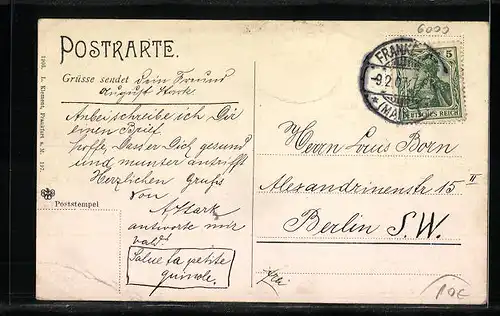 6000
POSTKARTE.
Grüsse sendet Dein Freund
August Stark
Anbei schreibe ich Dir
einen Brief.
hoffe, dass er Dich gesund
und munter antrifft
Herzlichen Gruß
von
A Stark
antworte mir
bald.
Salue la petite
Poststempel
1905. L. Klement, Frankfurt a. M. 197.
FRANKF
9.2.07
(MAIN)
5
DEUTSCHES REICH
Herrn Louis Born
Alexandrinenstr 15 II
Berlin S.W.
10€